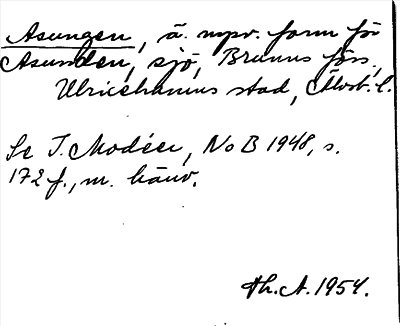 Asungen, ä. npv. form för
Åsunden, sjö, Brunns förs.,
Ulricehamns stad, Älvsb. l.
Se I. Modéer, NoB 1948, s.
172 f., m. hänv.
Th. A. 1954.